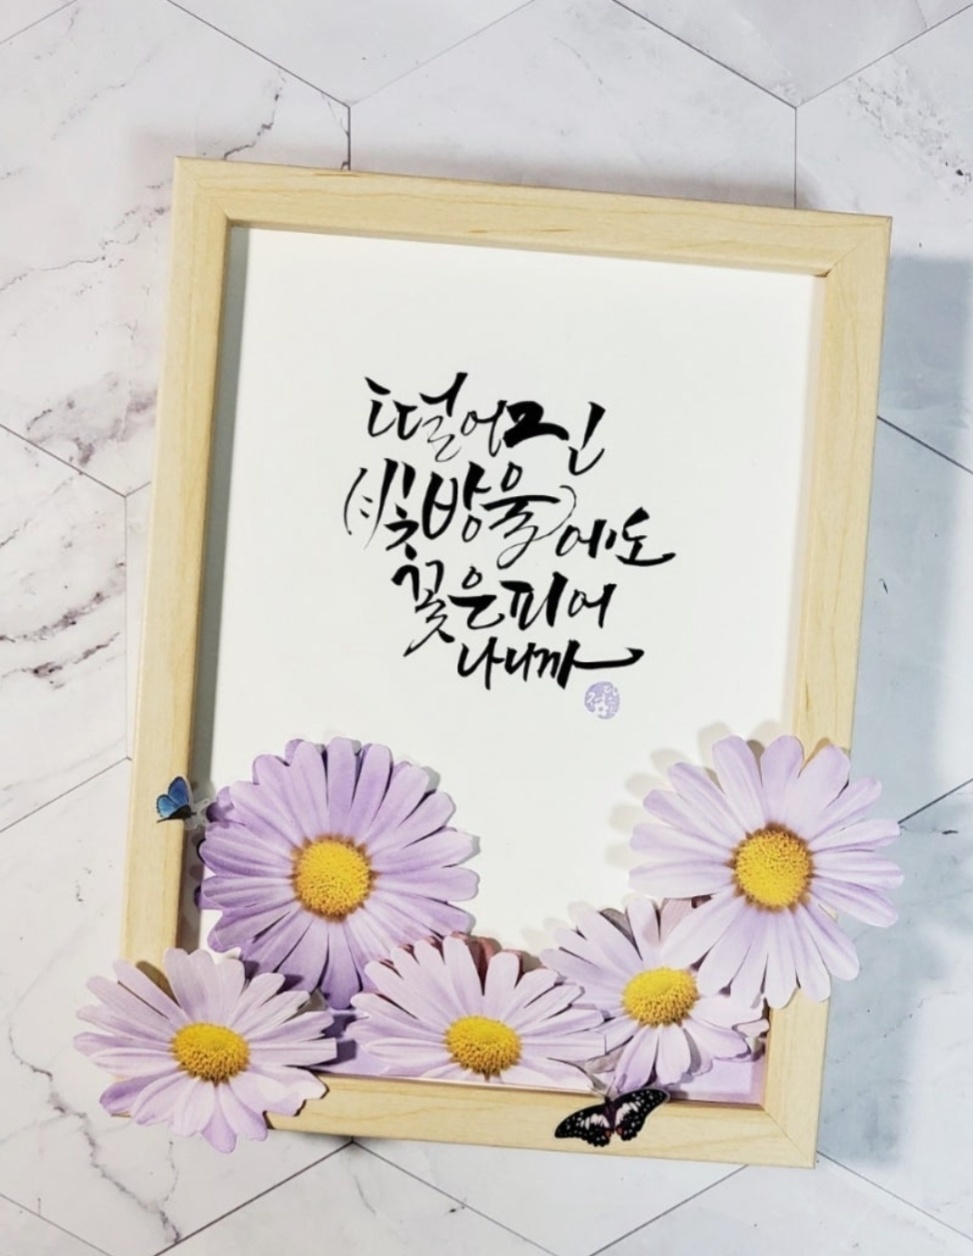 떨어진
빗방울에도
꽃은피어
나니까